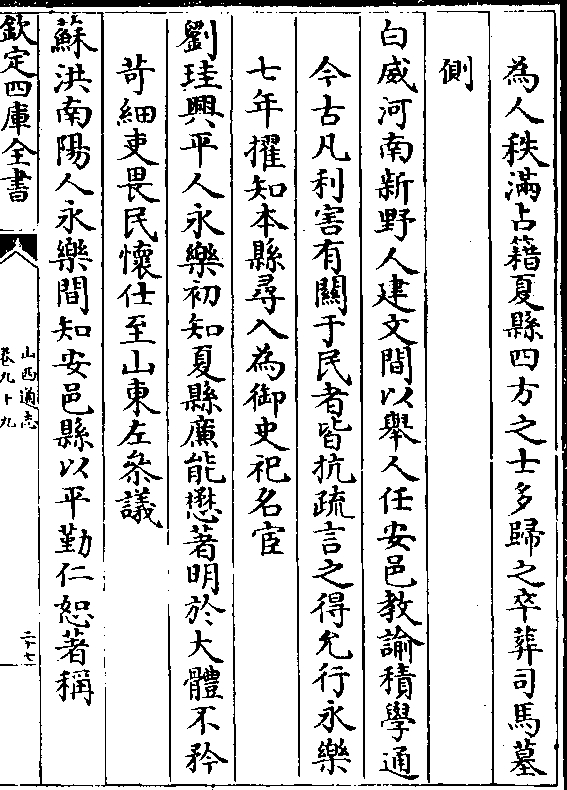 為人秩滿占籍夏縣四方之士多歸之卒葬司馬墓
側
白威河南新野人建文間以舉人任安邑教諭積學通
今古凡利害有關于民者皆抗疏言之得允行永樂
七年擢知本縣尋入為御史祀名宦
劉珪興平人永樂初知夏縣廉能懋著明於大體不矜
苛細吏畏民懷仕至山東左叅議
蘇洪南陽人永樂間知安邑縣以平勤仁恕著稱
欽定四庫全書
山西通志
卷九十九
二十七